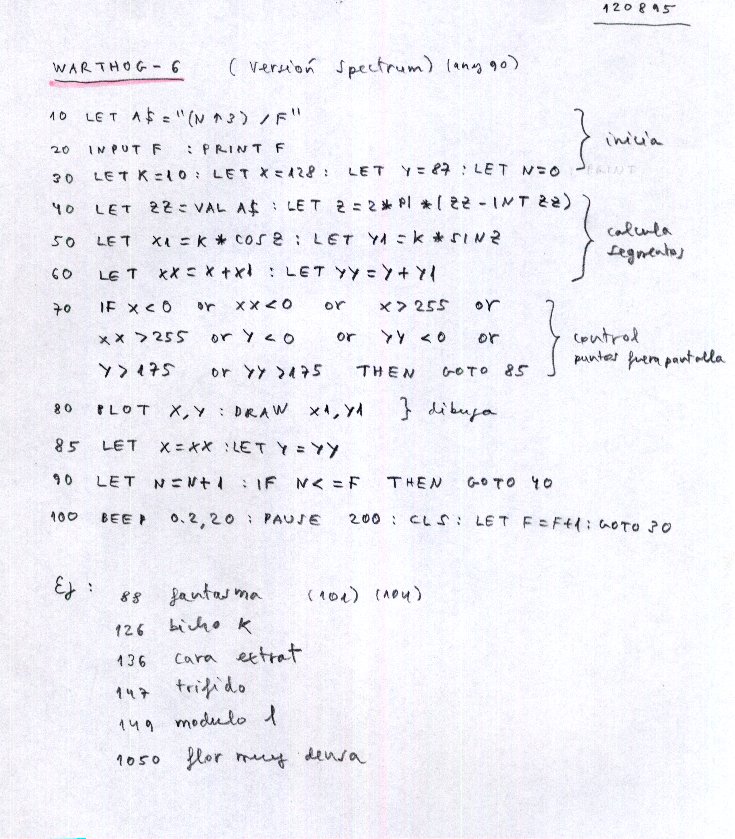 120895
WARTHOG-6 (Versión Spectrum) (any 90)
10 LET A$="(N↑3)/F"
20 INPUT F : PRINT F
inicia
30 LET K=10 : LET X=128 : LET Y=87 : LET N=0 : PRINT
40 LET ZZ=VAL A$ : LET Z=2*PI*(ZZ-INT ZZ)
50 LET X1=K*COSZ : LET Y1=K*SINZ
calcula
segmentos
60 LET XX=X+X1 : LET YY=Y+Y1
70 IF X<0 or XX<0 or X>255 or
XX>255 or Y<0 or YY<0 or
control
puntos fuera pantalla
Y>175 or YY>175 THEN GOTO 85
80 PLOT X,Y : DRAW X1,Y1 } dibuja
85 LET X=XX : LET Y=YY
90 LET N=N+1 : IF N<=F THEN GOTO 40
100 BEEP 0.2,20 : PAUSE 200 : CLS : LET F=F+1 : GOTO 30
Ej : 88 fantasma (101) (104)
126 bicho K
136 cara extrat
147 trifido
149 modulo l
1050 flor muy densa